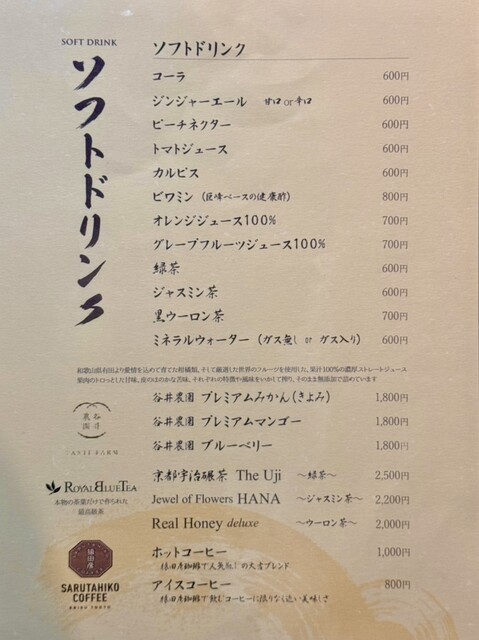 SOFT DRINK
ソフトドリンク
ソフトドリンク
コーラ 600円
ジンジャーエール 甘口 or 辛口 600円
ピーチネクター 600円
トマトジュース 600円
カルピス 600円
ビワミン (巨峰ベースの健康酢) 800円
オレンジジュース100% 700円
グレープフルーツジュース100% 700円
緑茶 600円
ジャスミン茶 600円
黒ウーロン茶 700円
ミネラルウォーター (ガス無し or ガス入り) 600円
和歌山県有田より愛情を込めて育てた柑橘類、そして厳選した世界のフルーツを使用した、果汁100%の濃厚ストレートジュース
果肉のトロっとした甘味、皮のほのかな苦味、それぞれの特徴や風味をいかして搾り、そのまま無添加で詰めています
谷井農園
谷井農園 プレミアムみかん(きよみ) 1,800円
谷井農園 プレミアムマンゴー 1,800円
谷井農園 ブルーベリー 1,800円
ROYAL BLUE TEA
本物の茶葉だけで作られた
最高級茶
京都宇治碾茶 The Uji ～緑茶～ 2,500円
Jewel of Flowers HANA ～ジャスミン茶～ 2,200円
Real Honey deluxe ～ウーロン茶～ 2,000円
猿田彦
SARUTAHIKO
COFFEE
EBISU TOKYO
ホットコーヒー 1,000円
猿田彦珈琲で人気No.1の大吉ブレンド
アイスコーヒー 800円
猿田彦珈琲で飲むコーヒーに限りなく近い美味しさ